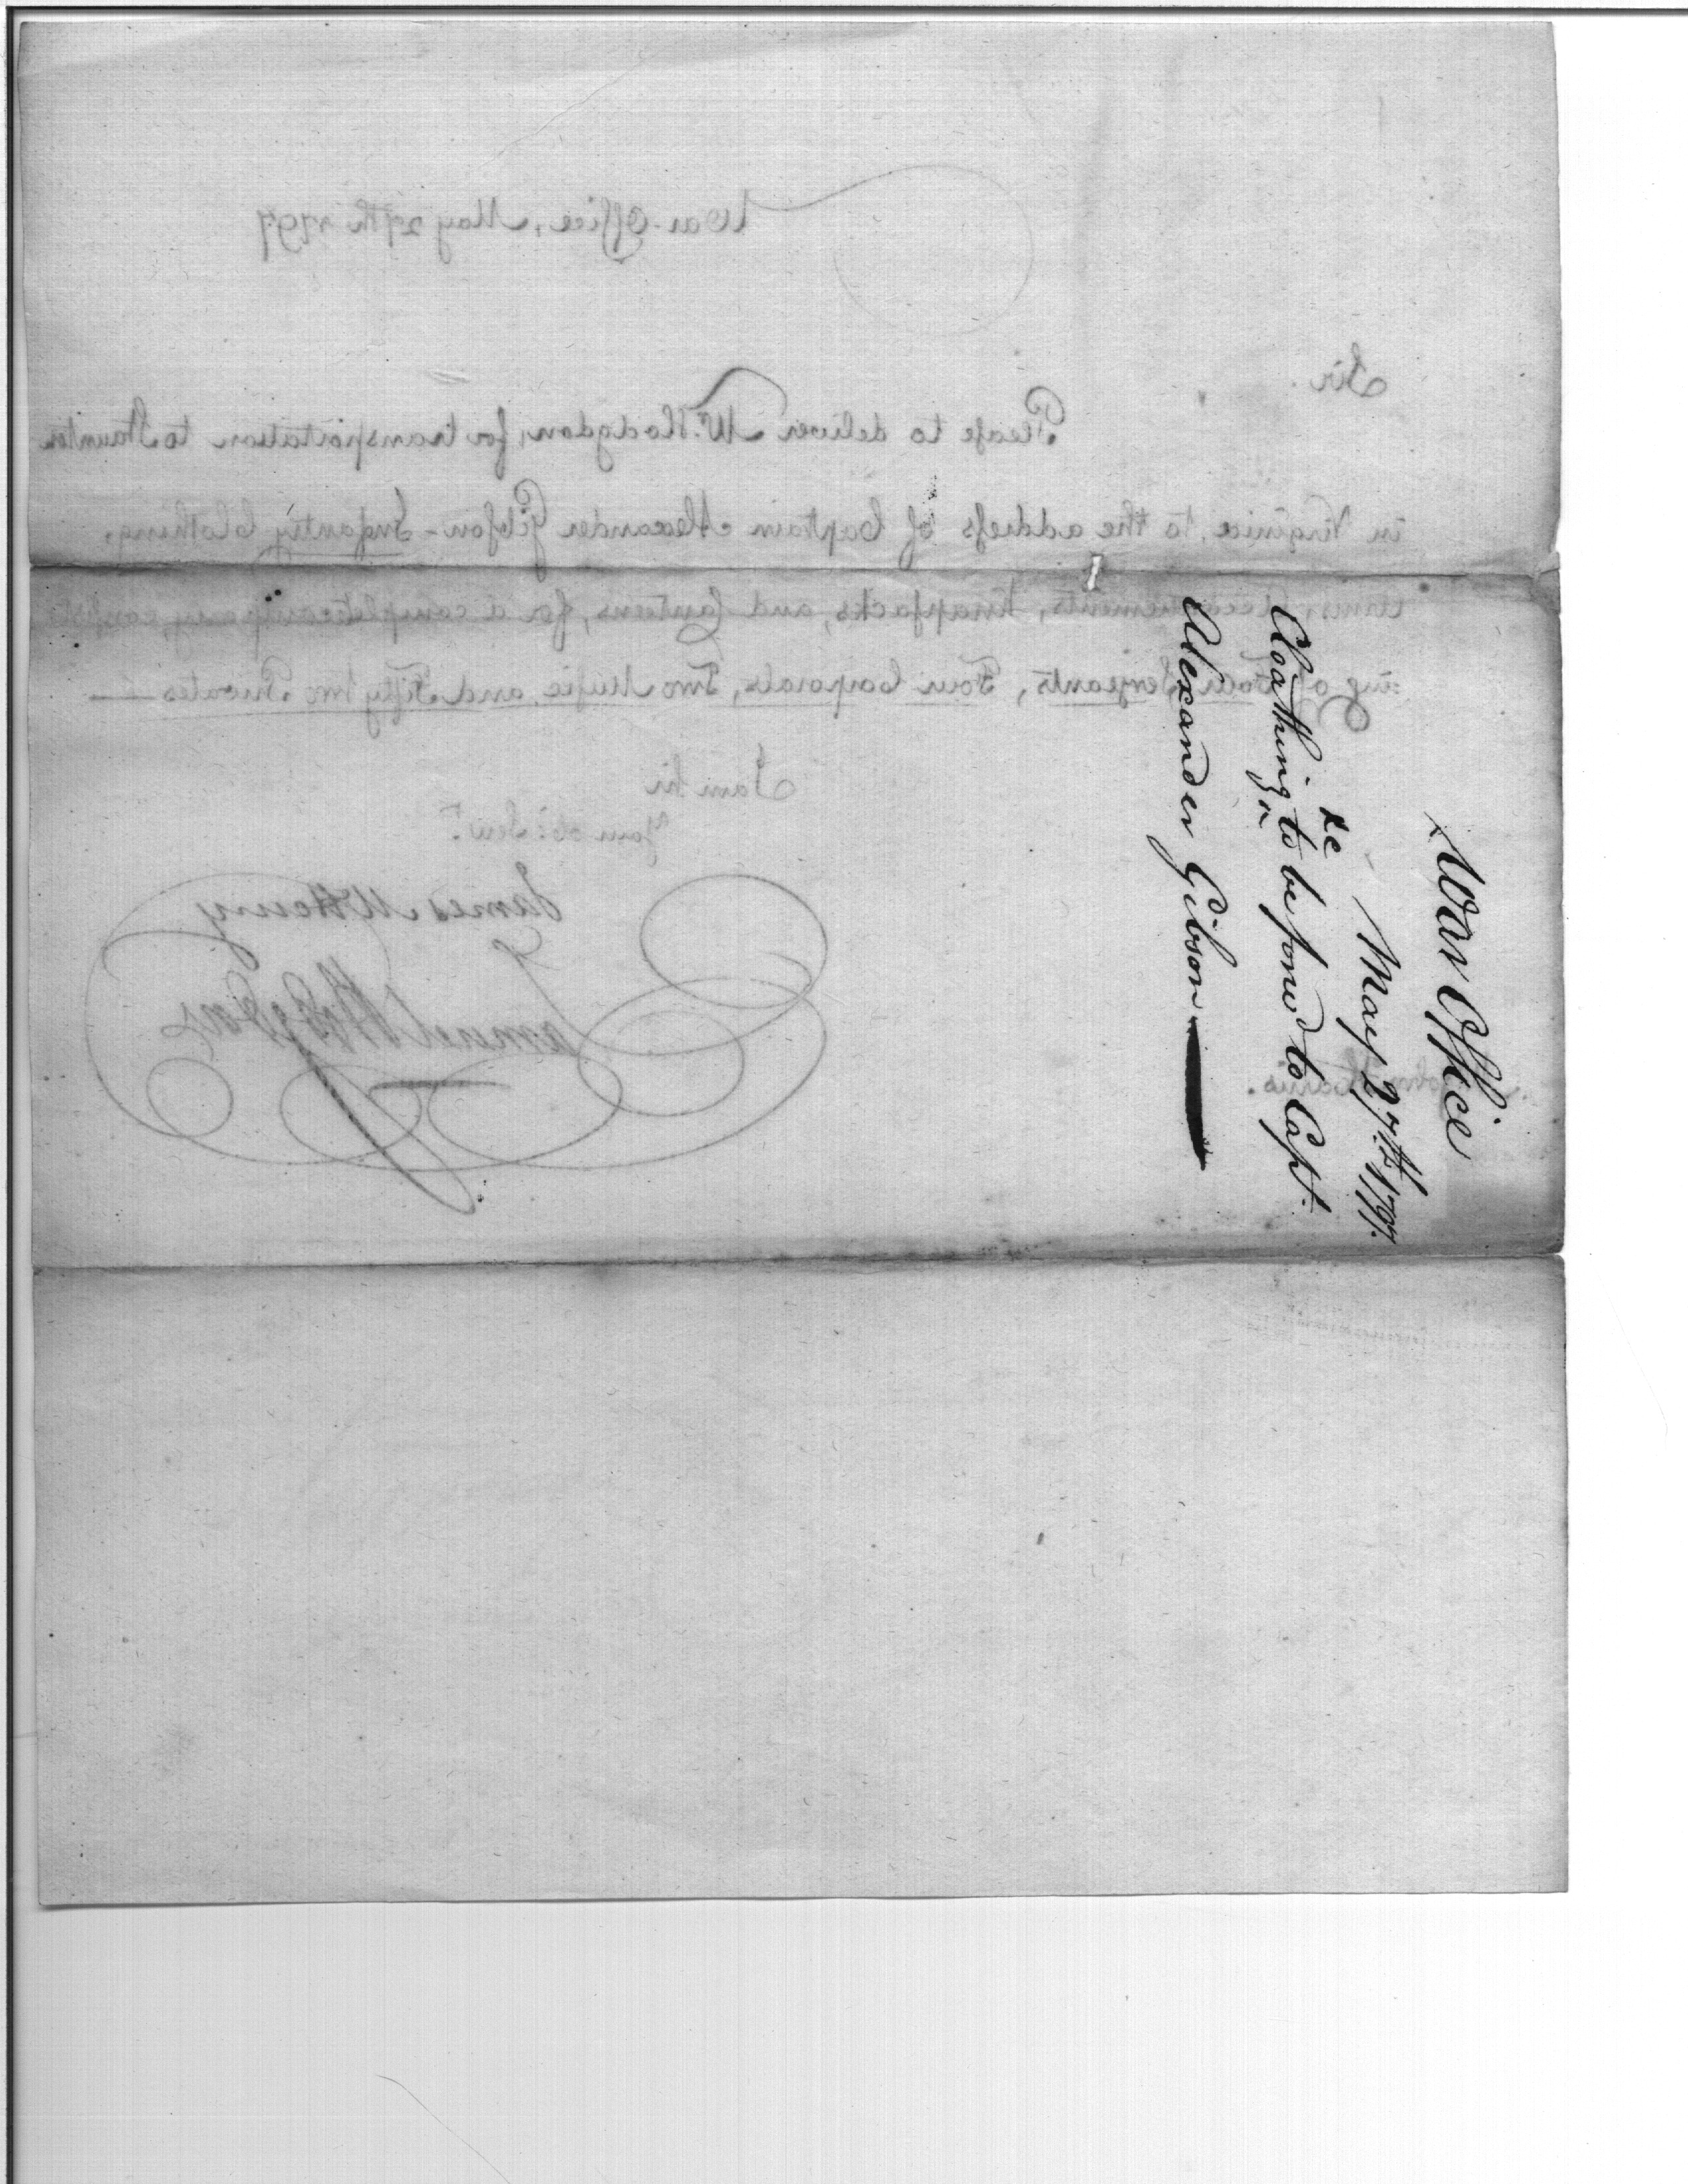 War Office
May 27th. 1797.
&c
Cloathing to be forwd to Capt.
Alexander Gibson
War Office, May 27th 1797
Sir.
Please to deliver Mr. Hodgdon, for transportation to Staunton
in Virginia, to the address of Captain Alexander Gibson - Infantry Clothing,
arms, accoutrements, knapsacks, and Canteens, for a complete company, consist
=ing of Four Sergeants, Four Corporals, Two Music and Fifty two Privates
I am Sir
Your ob: Servt.
James McHenry
Samuel Hodgdon
John Harris.